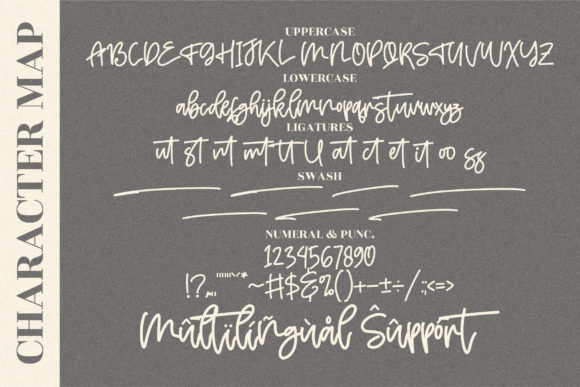 CHARACTER MAP
UPPERCASE
ABCDEFGHIJKLMNOPQRSTUVWXYZ
LOWERCASE
abcdefghijklmnopqrstuvwxyz
LIGATURES
ut st nt mt tt ll at ct et it oo ss
SWASH
NUMERAL & PUNC.
1234567890
!? ~#$&%()+-±÷/:;<=>
Mûltïlíñgùål Ŝûppórt